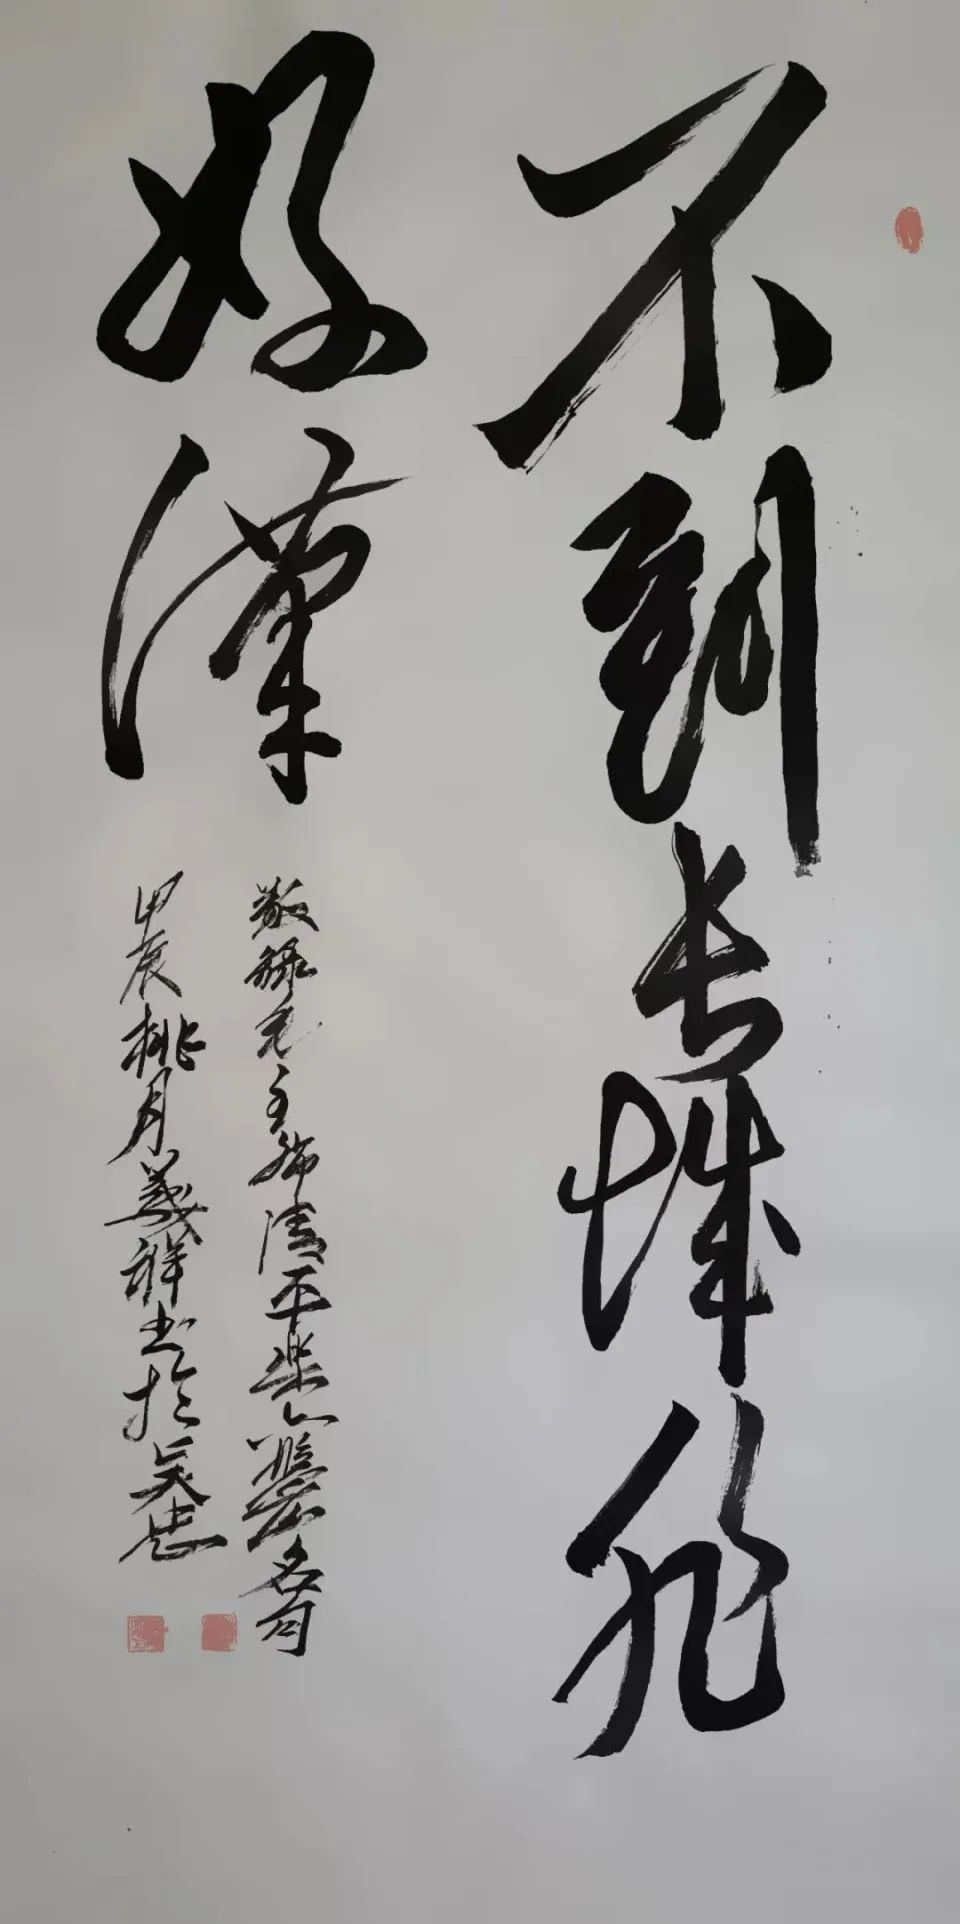 不到长城非
好汉
敬录毛主席清平乐六盘山名句
甲辰桃月义祥书于吴忠